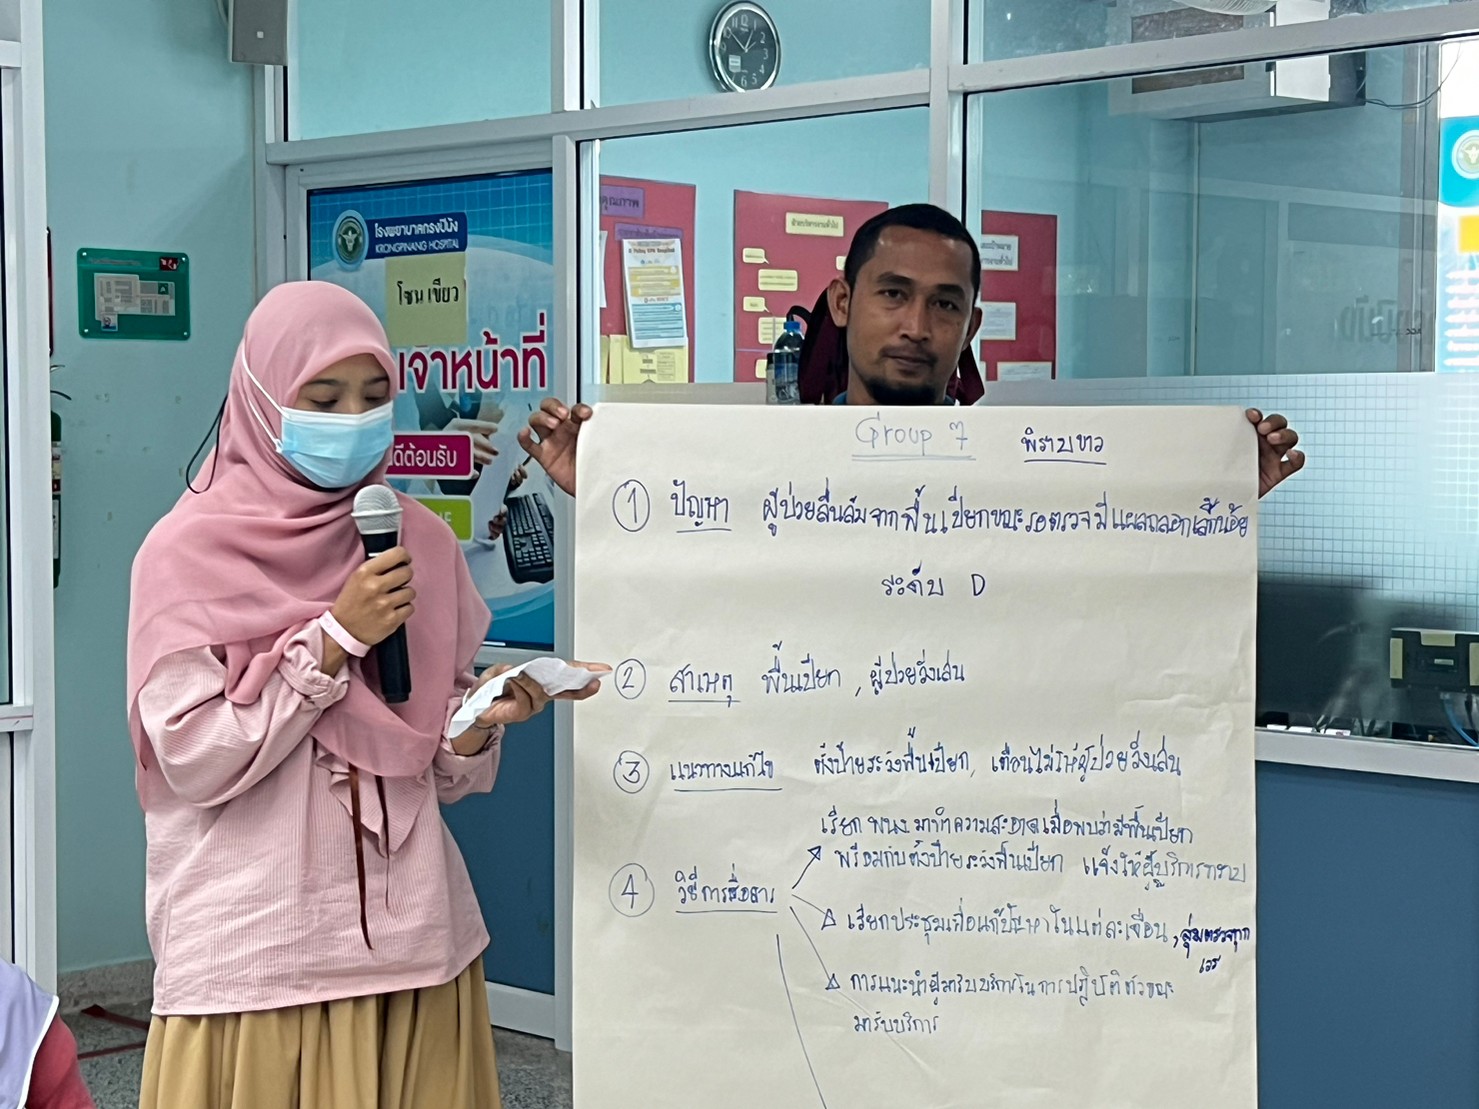 โรงพยาบาลกรงปินัง
KRONGPINANG HOSPITAL
โซนเขียว
เจ้าหน้าที่
ดีต้อนรับ
คุณภาพ
Group 7 พิราบขาว
① ปัญหา ผู้ป่วยลื่นล้มจากพื้นเปียกขณะรอตรวจมีแผลถลอกเล็กน้อย
ระดับ D
② สาเหตุ พื้นเปียก , ผู้ป่วยวิ่งเล่น
③ แนวทางแก้ไข ตั้งป้ายระวังพื้นเปียก, เตือนไม่ให้ผู้ป่วยวิ่งเล่น
เรียก พนง มาทำความสะอาดเมื่อพบว่ามีพื้นเปียก
พร้อมกับตั้งป้ายระวังพื้นเปียก แจ้งให้ผู้บริการทราบ
④ วิธีการสื่อสาร
เรียกประชุมเพื่อแก้ปัญหาในแต่ละเดือน , สุ่มตรวจทุกเวร
การแนะนำผู้มารับบริการในการปฏิบัติตัวขณะ
มารับบริการ